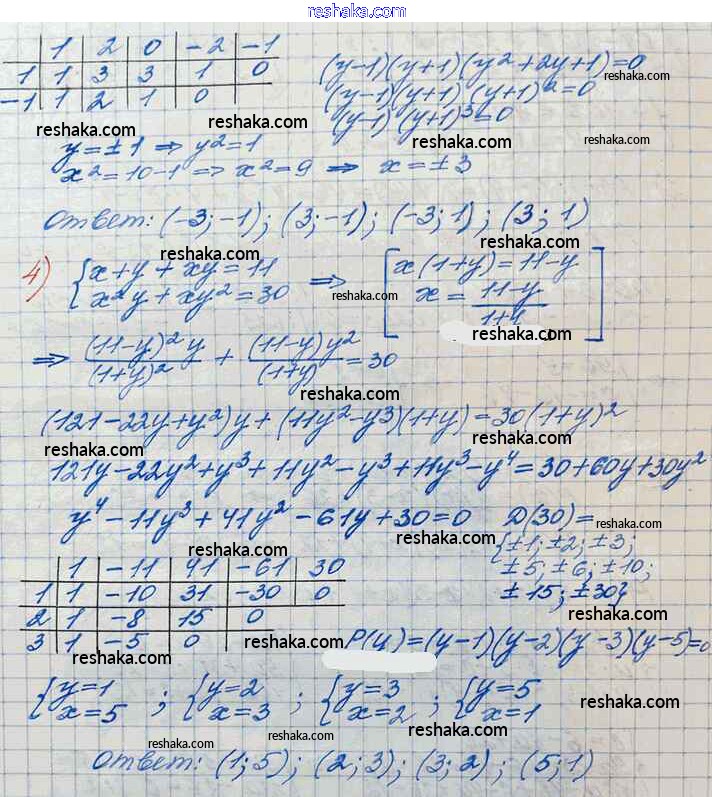 reshaka.com
1 2 0 -2 -1
1 1 3 3 1 0
-1 1 2 1 0
(y-1)(y+1)(y²+2y+1)=0
reshaka.com
(y-1)(y+1)(y+1)²=0
(y-1)(y+1)³=0
reshaka.com reshaka.com reshaka.com
y=±1 ⇒ y²=1
x²=10-1 ⇒ x²=9 ⇒ x=±3
Ответ: (-3;-1); (3;-1); (-3;1); (3;1)
reshaka.com reshaka.com
4) {x+y+xy=11
x²y+xy²=30 ⇒ [x(1+y)=11-y
x=(11-y)/(1+y)]
reshaka.com reshaka.com reshaka.com
⇒ (11-y)²y/(1+y)² + (11-y)y²/(1+y) =30
reshaka.com
(121-22y+y²)y+(11y²-y3)(1+y)=30(1+y)²
reshaka.com reshaka.com
121y-22y²+y³+11y²-y³+11y³-y⁴=30+60y+30y²
y⁴-11y³+41y²-61y+30=0
reshaka.com reshaka.com
D(30)=
reshaka.com
{±1; ±2; ±3;
±5; ±6; ±10;
±15; ±30}
1 -11 41 -61 30
1 1 -10 31 -30 0
2 1 -8 15 0
3 1 -5 0
reshaka.com reshaka.com
P(y)=(y-1)(y-2)(y-3)(y-5)=0
reshaka.com
{y=1
x=5 ; {y=2
x=3 ; {y=3
x=2 ; {y=5
x=1
reshaka.com reshaka.com reshaka.com
reshaka.com reshaka.com
Ответ: (1;5); (2;3); (3;2); (5;1)